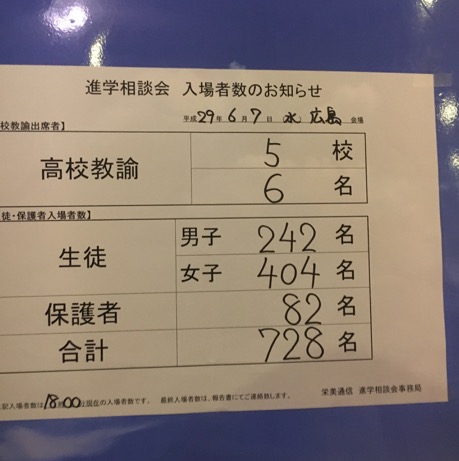 進学相談会 入場者数のお知らせ
平成 29 年 6 月 7 日 水 広島 会場
校教諭出席者】
高校教諭 5 校
6 名
徒・保護者入場者数】
生徒 男子 242 名
女子 404 名
保護者 82 名
合計 728 名
記入場者数は 18:00 現在の入場者数です。 最終入場者数は、報告書にてご連絡致します。
栄美通信 進学相談会事務局